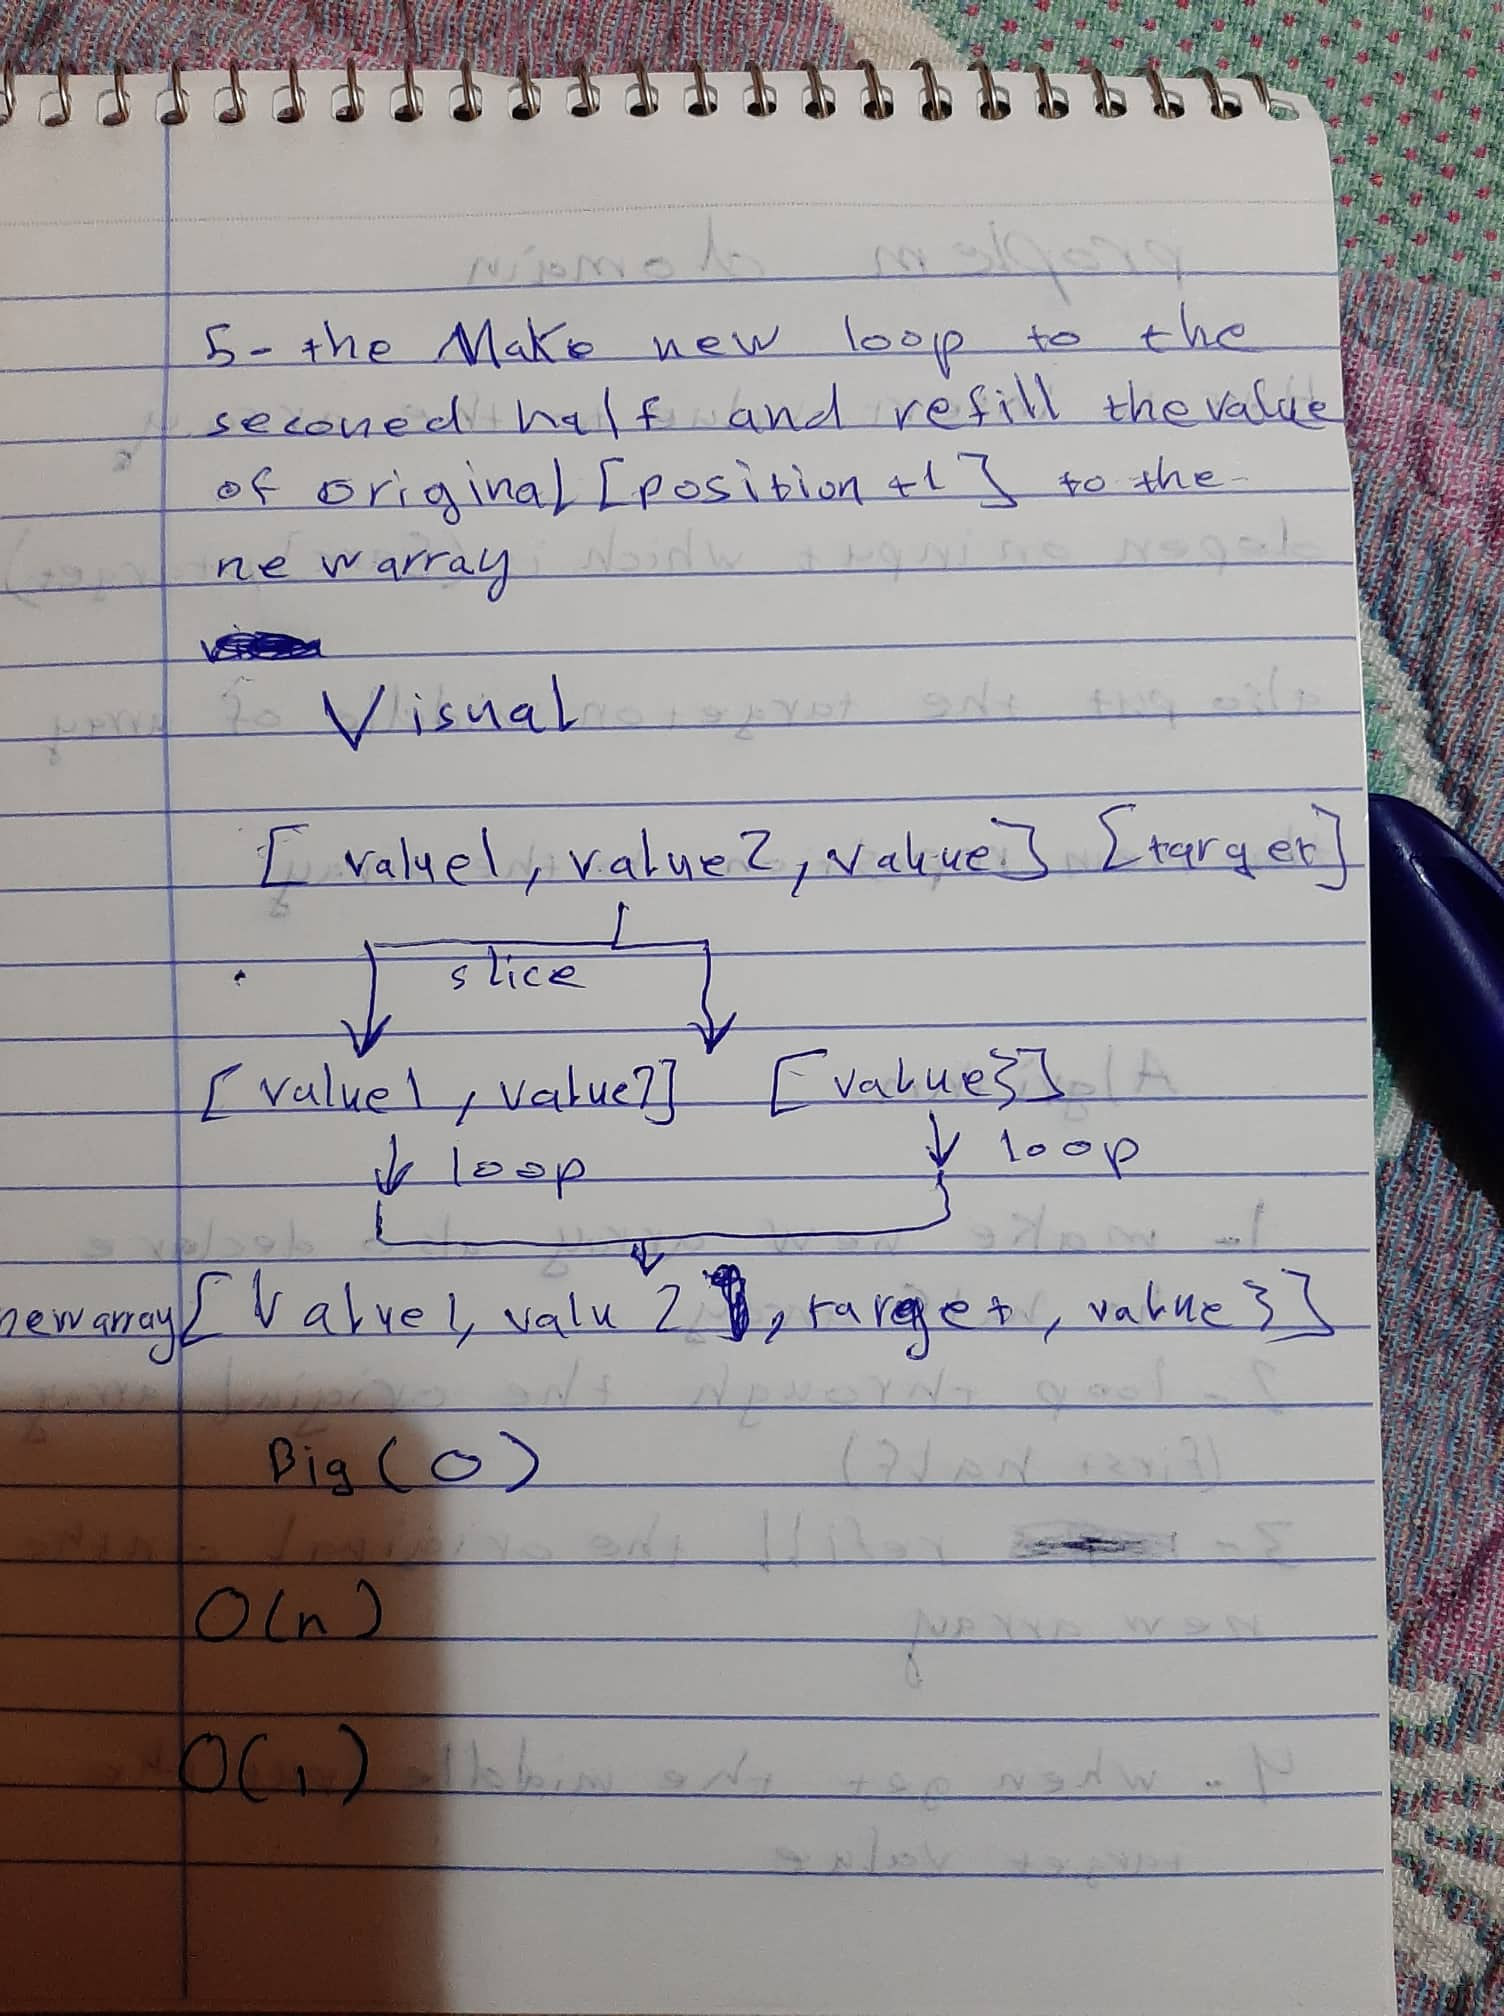 5- the Make new loop to the
seconed half and refill the value
of original [position +1] to the
new array
Visual
[ value1, value2, value] [target]
slice
[ value1, value2] [value3]
loop loop
new array [ Value1, valu 2, target, value3]
Big (O)
O(n)
O(1)